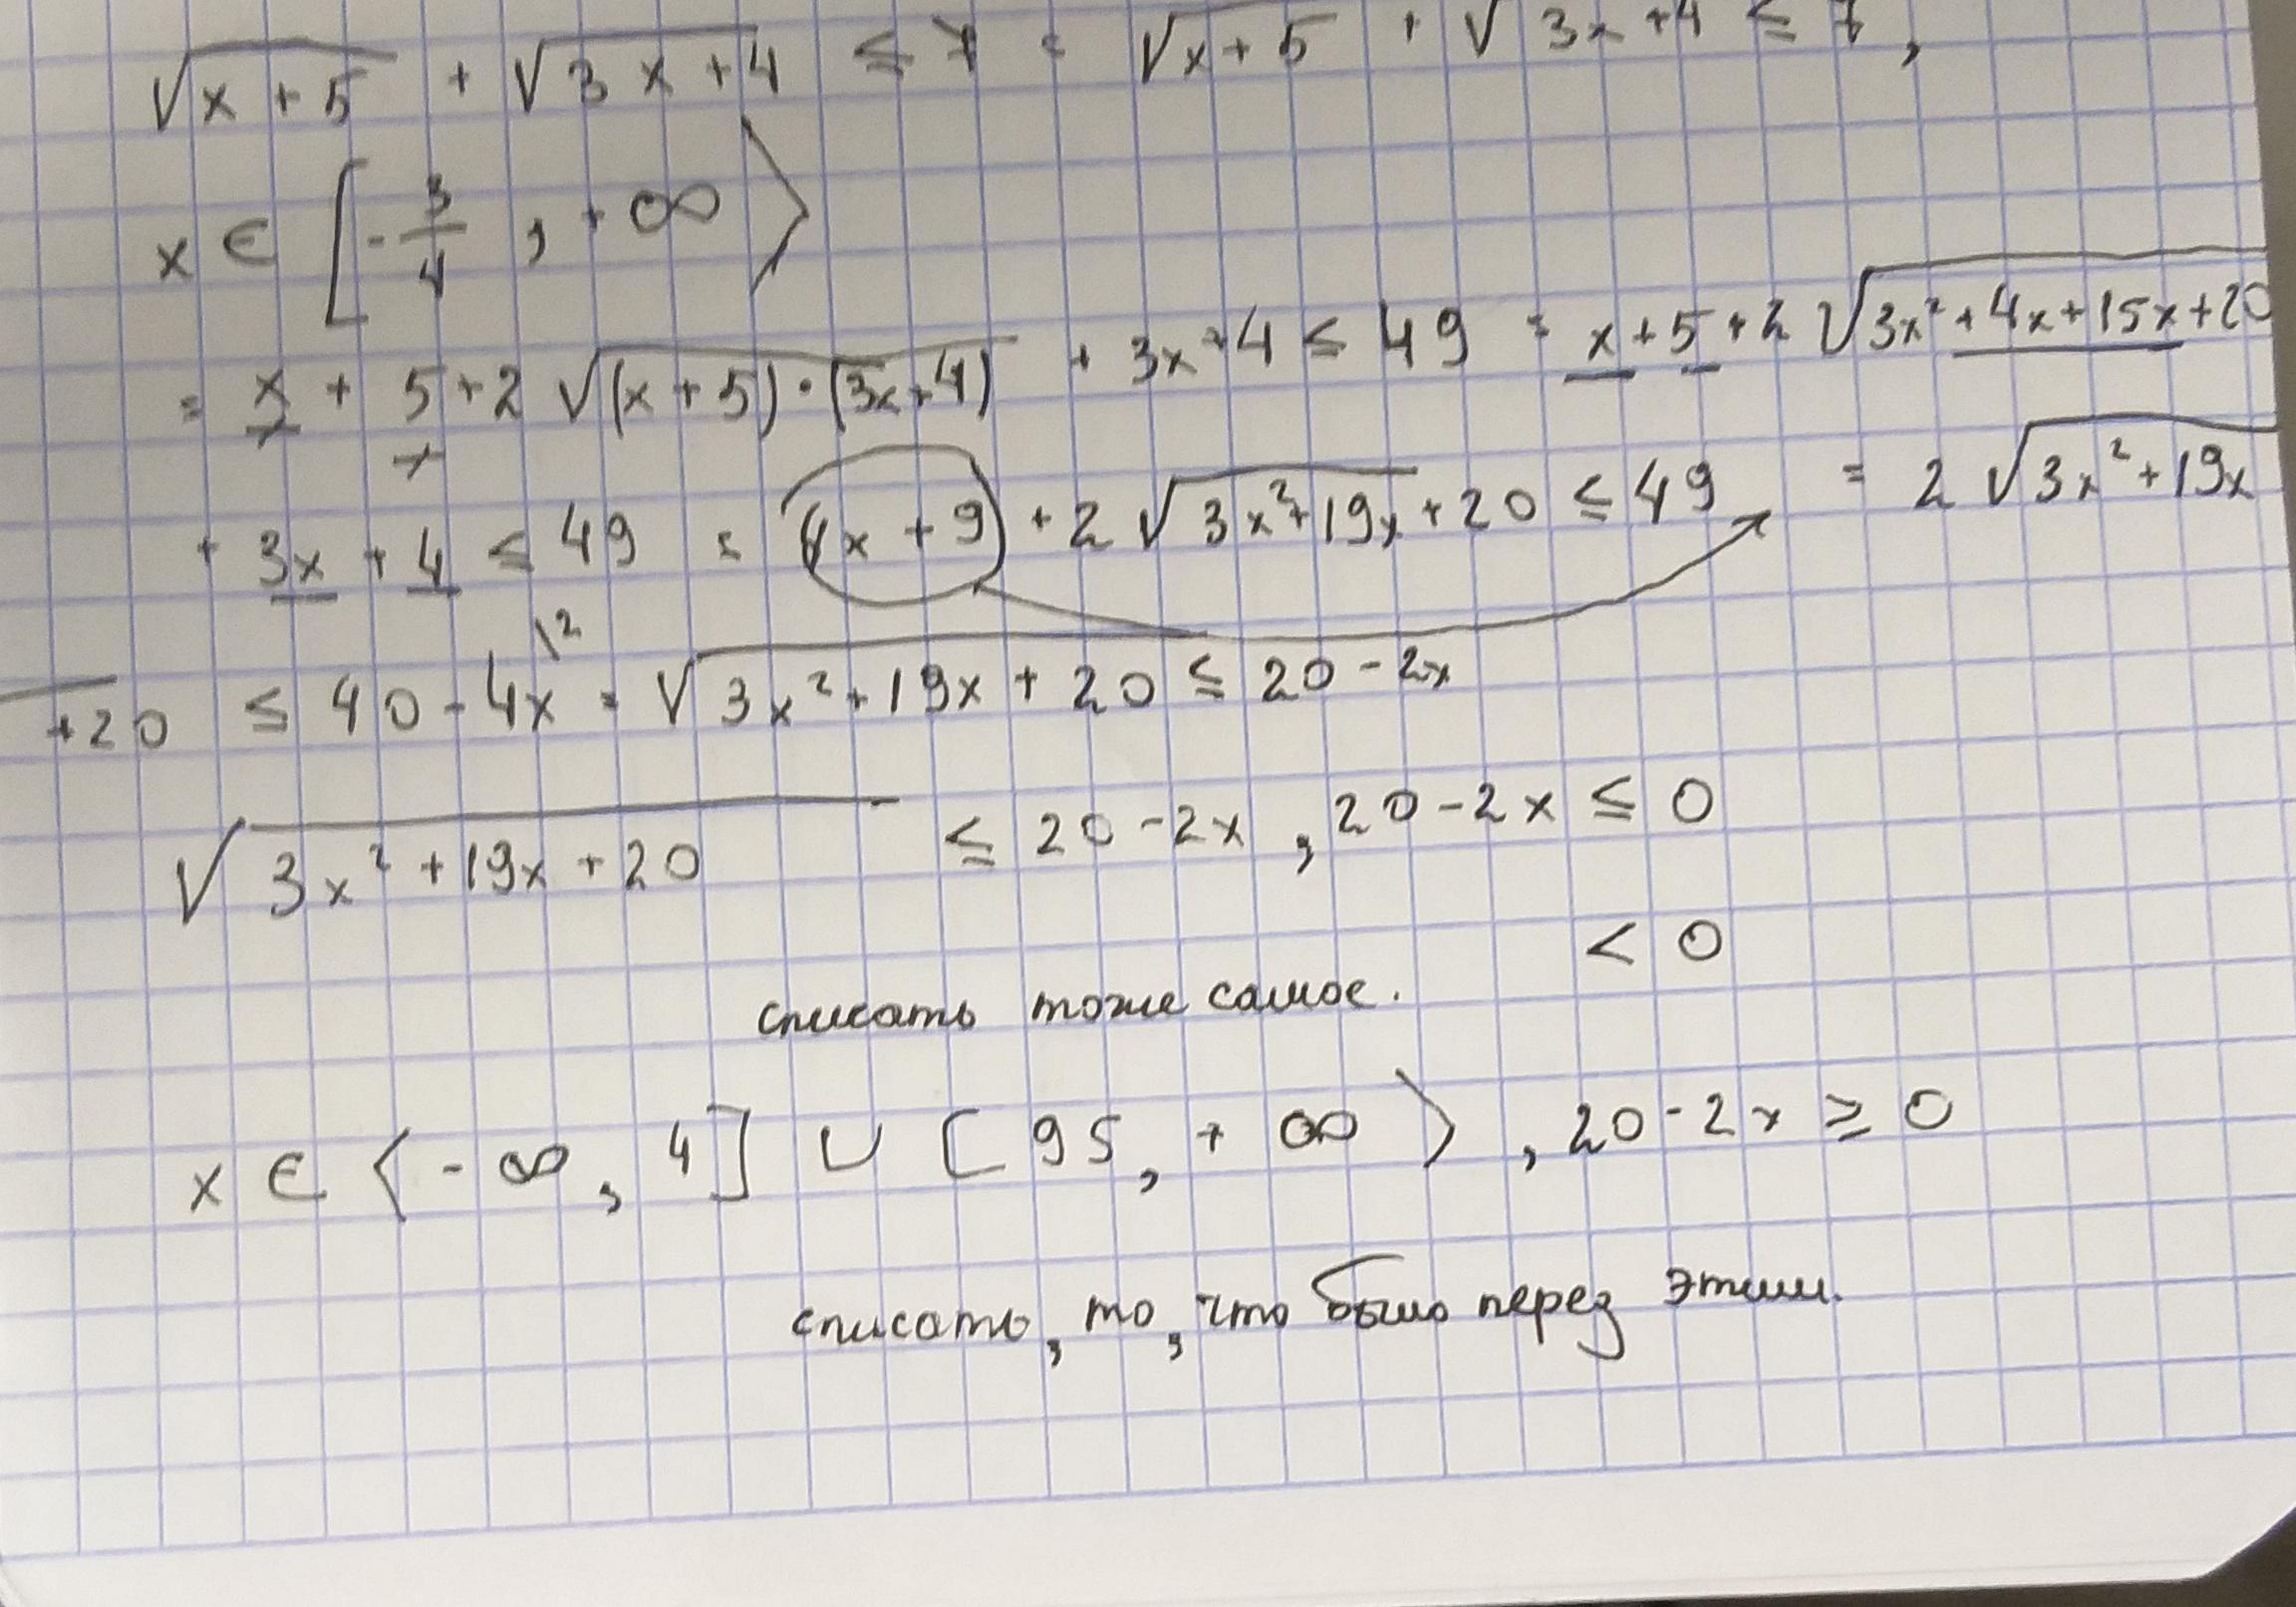 √x + 5 + √3x + 4 ≤ 7 = √x + 5 + √3x + 4 ≤ 7,
x ∈ [-3/4, +∞⟩
= x + 5 + 2√(x + 5)·(3x + 4) + 3x + 4 ≤ 49 = x + 5 + 2√3x² + 4x + 15x + 20
+ 3x + 4 ≤ 49 = 4x + 9 + 2√3x² + 19x + 20 ≤ 49 = 2√3x² + 19x
+20 ≤ 40 - 4x |² = √3x² + 19x + 20 ≤ 20 - 2x
√3x² + 19x + 20 ≤ 20 - 2x, 20 - 2x ≤ 0
< 0
списать тоже самое.
x ∈ ⟨-∞, 4] ∪ [95, +∞⟩, 20 - 2x ≥ 0
списать, то, что было перед этим.